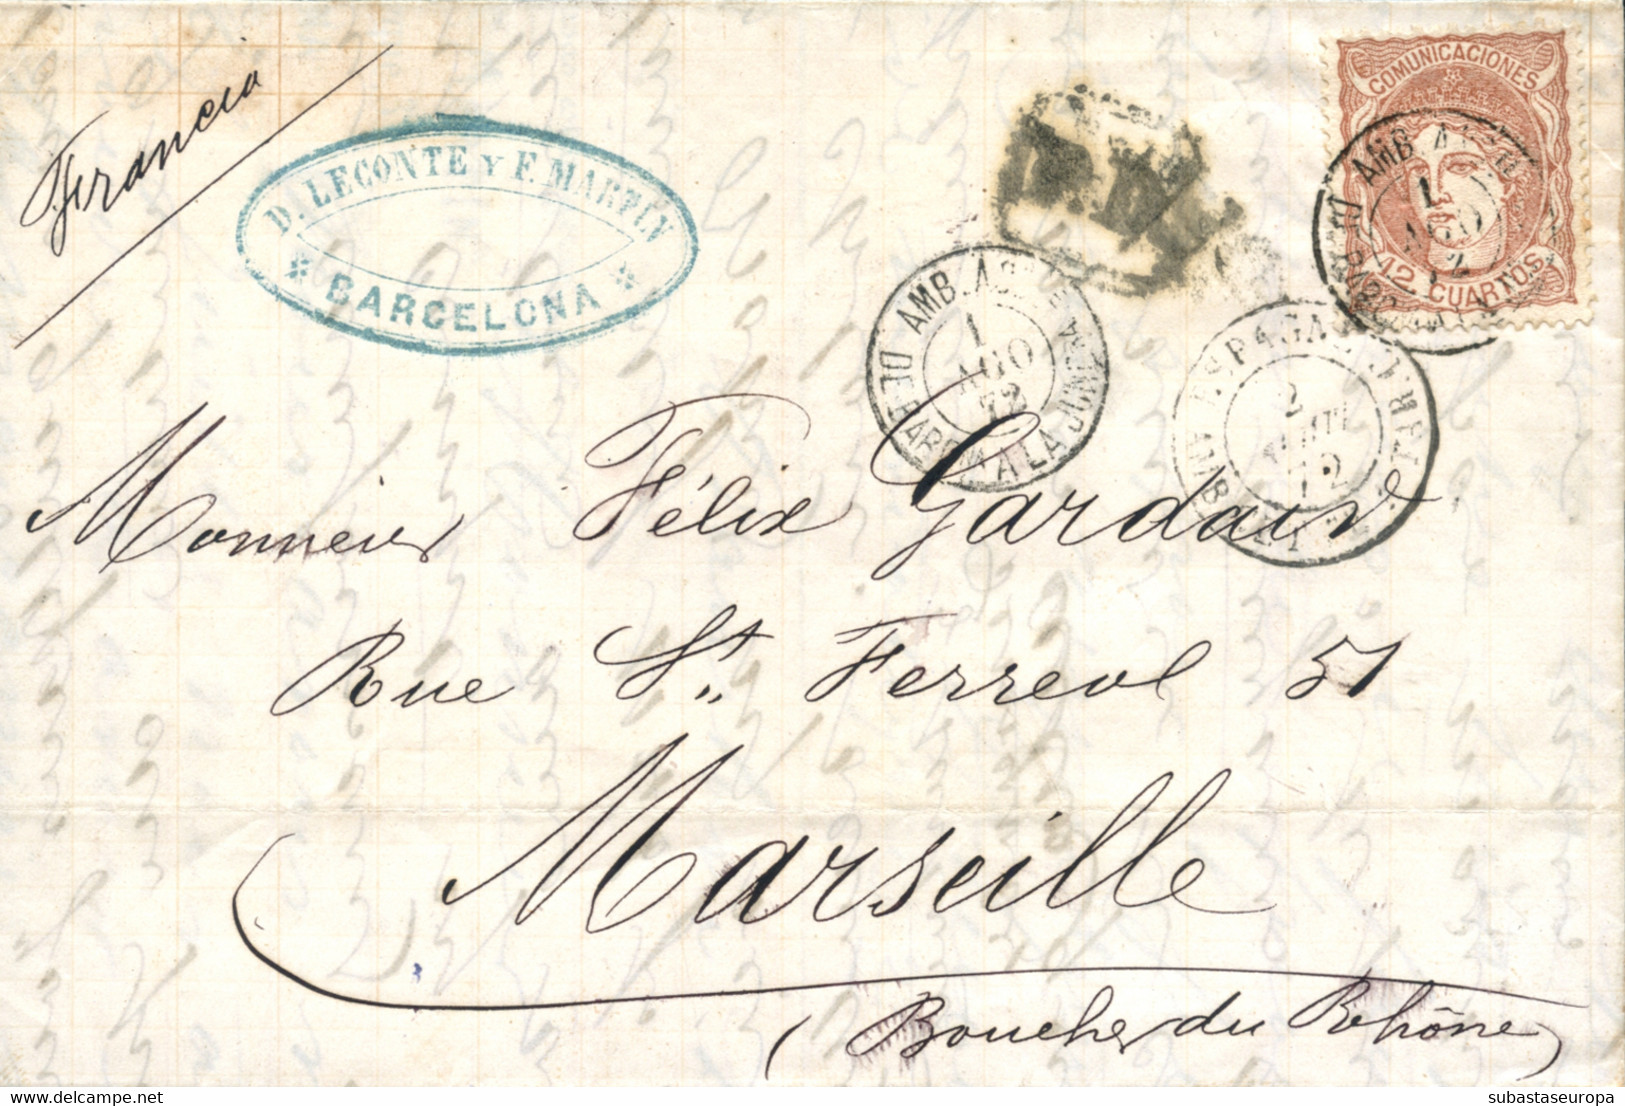 Francia
D. LECONTE Y F. MARTIN
* BARCELONA *
P.D.
COMUNICACIONES
12 CUARTOS.
AMB. ASC.
1
AGO
72
AMB. ASC.
1
AGO
72
DE BARNA A LA JUNQA
ESPAGNE
2
AOUT
72
AMB.
Monsieur Félix Gardair
Rue St. Ferreol 51
Marseille
(Bouches du Rhône)
subastaseuropa